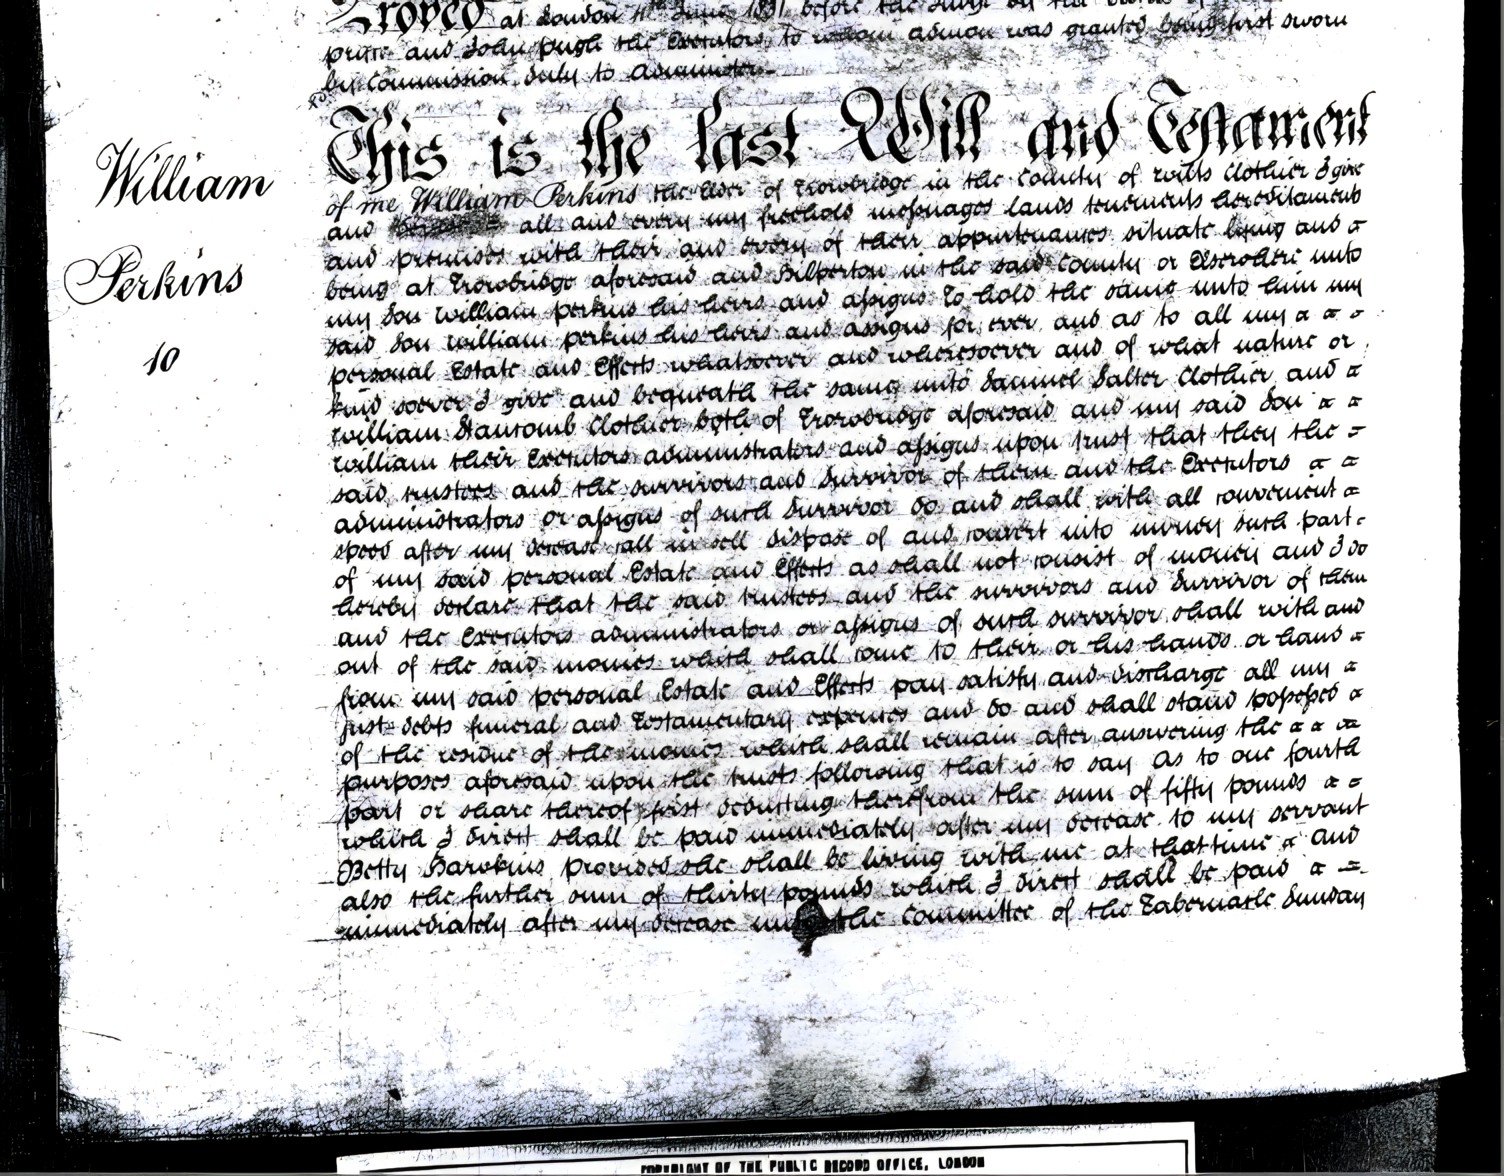 Proved at London 4th June 1831 before the Judge by the Oaths of
and John Pugh the Executors to whom admon was granted being first sworn
by Commission duly to administer.
This is the last Will and Testament
William
Perkins
10
of me William Perkins the Elder of Trowbridge in the County of Wilts Clothier I give
and all and every my freehold messuages lands tenements hereditaments
and premises with their and every of their appurtenances situate lying and
being at Trowbridge aforesaid and Hilperton in the said County or elsewhere unto
my Son William Perkins his heirs and assigns To hold the same unto him my
said Son William Perkins his heirs and assigns for ever and as to all my
personal Estate and Effects whatsoever and wheresoever and of what nature or
kind soever I give and bequeath the same unto Samuel Salter Clothier and
William Stancomb Clothier both of Trowbridge aforesaid and my said Son
William their Executors administrators and assigns upon trust that they the
said trustees and the survivors and Survivor of them and the Executors
administrators or assigns of such Survivor do and shall with all convenient
speed after my decease call in sell dispose of and convert into money such part
of my said personal Estate and Effects as shall not consist of money and I do
hereby declare that the said trustees and the survivors and Survivor of them
and the Executors administrators or assigns of such survivor shall with and
out of the said monies which shall come to their or his hands or hand
from my said personal Estate and Effects pay satisfy and discharge all my
just debts funeral and Testamentary expenses and do and shall stand possessed
of the residue of the monies which shall remain after answering the
purposes aforesaid upon the trusts following that is to say As to one fourth
part or share thereof first deducting therefrom the sum of fifty pounds
which I direct shall be paid immediately after my decease to my servant
Betty Hawkins provided she shall be living with me at that time and
also the further sum of thirty pounds which I direct shall be paid
immediately after my decease unto the Committee of the Tabernacle Sunday
COPYRIGHT OF THE PUBLIC RECORD OFFICE, LONDON